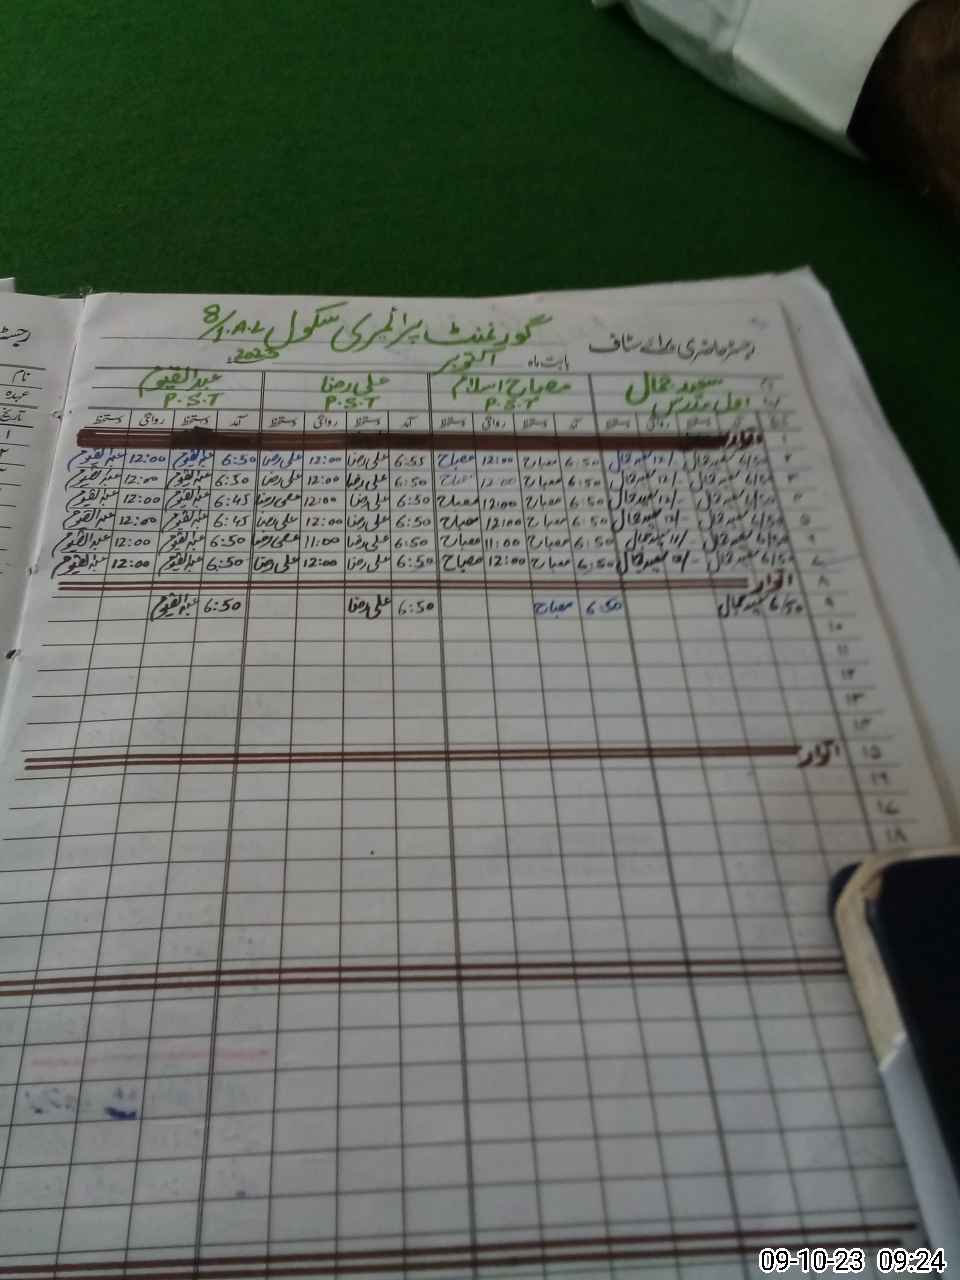 گورنمنٹ پرائمری سکول 8/1.A.L
رجسٹر حاضری برائے سٹاف بابت ماہ اکتوبر 2023ء
سعید جمال مصباح اسلام علی رضا عبدالقیوم
اول مدرس P.S.T P.S.T P.S.T
آمد دستخط روانگی دستخط آمد دستخط روانگی دستخط آمد دستخط روانگی دستخط آمد دستخط روانگی دستخط
۱ اتوار
۲ 6/50 سعید جمال 12/- سعید جمال 6:50 مصباح 12:00 مصباح 6:55 علی رضا 12:00 علی رضا 6:50 عبدالقیوم 12:00 عبدالقیوم
۳ 6/50 سعید جمال 12/- سعید جمال 6:50 مصباح 12:00 مصباح 6:50 علی رضا 12:00 علی رضا 6:50 عبدالقیوم 12:00 عبدالقیوم
۴ 6/50 سعید جمال 12/- سعید جمال 6:50 مصباح 12:00 مصباح 6:50 علی رضا 12:00 علی رضا 6:45 عبدالقیوم 12:00 عبدالقیوم
۵ 6/50 سعید جمال 12/- سعید جمال 6:50 مصباح 12:00 مصباح 6:50 علی رضا 12:00 علی رضا 6:45 عبدالقیوم 12:00 عبدالقیوم
۶ 6/50 سعید جمال 11/- سعید جمال 6:50 مصباح 11:00 مصباح 6:50 علی رضا 11:00 علی رضا 6:50 عبدالقیوم 12:00 عبدالقیوم
۷ 6/50 سعید جمال سعید جمال 6:50 مصباح 12:00 مصباح 6:50 علی رضا 12:00 علی رضا 6:50 عبدالقیوم 12:00 عبدالقیوم
۸ اتوار
۹ 6/50 سعید جمال 6:50 مصباح 6:50 علی رضا 6:50 عبدالقیوم
۱۰
۱۱
۱۲
۱۳
۱۴
۱۵ اتوار
۱۶
۱۷
۱۸
نام
عہدہ
تاریخ
۱
09-10-23 09:24